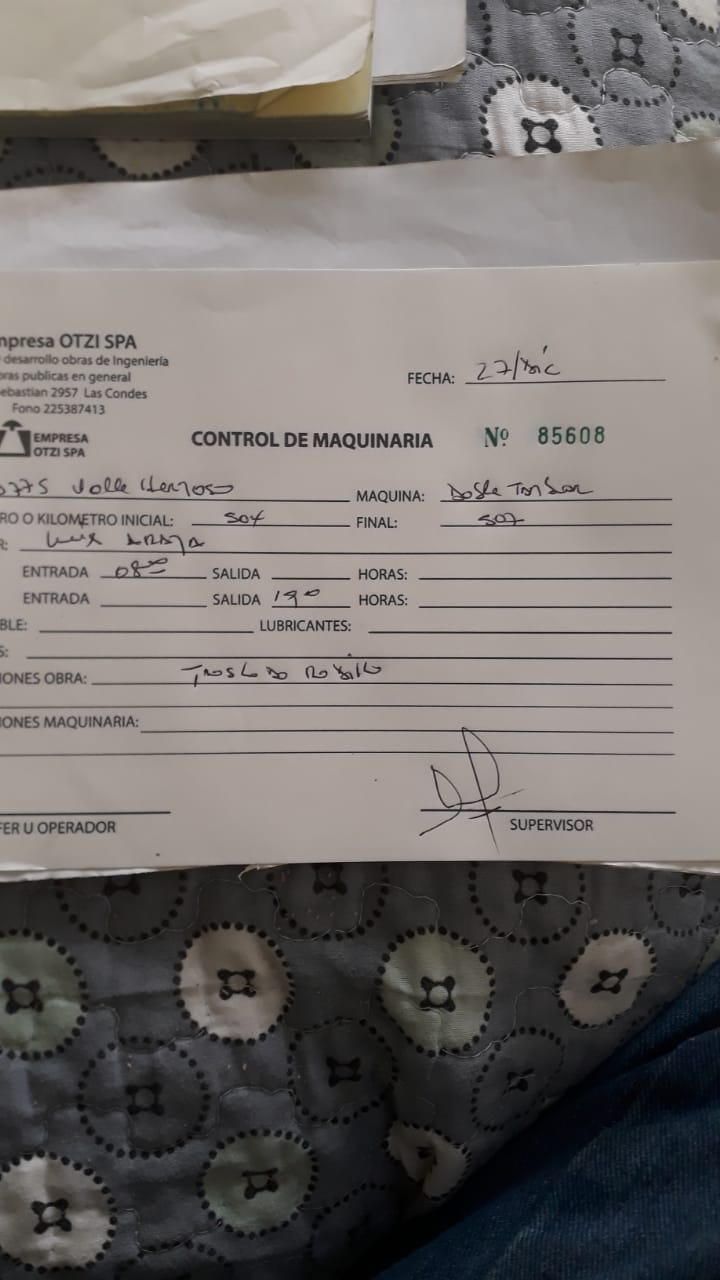 mpresa OTZI SPA
desarrollo obras de Ingeniería
ras publicas en general
ebastian 2957 Las Condes
Fono 225387413
FECHA: 27/Dic
EMPRESA
OTZI SPA
CONTROL DE MAQUINARIA
Nº 85608
Valle Hermoso MAQUINA: Doble Tambor
RO O KILOMETRO INICIAL: 504 FINAL: 507
R: Luis Araya
ENTRADA 08⁰⁰ SALIDA HORAS:
ENTRADA SALIDA 19⁰⁰ HORAS:
BLE: LUBRICANTES:
S:
IONES OBRA: Traslado Rodillo
IONES MAQUINARIA:
FER U OPERADOR
SUPERVISOR